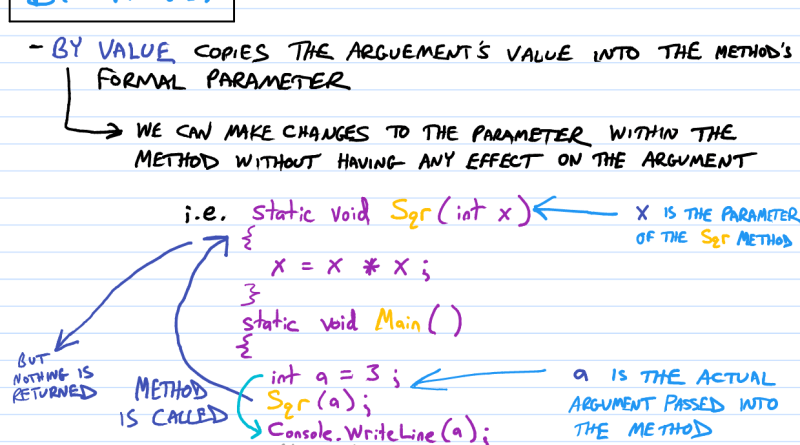 - BY VALUE COPIES THE ARGUEMENT'S VALUE INTO THE METHOD'S
FORMAL PARAMETER
WE CAN MAKE CHANGES TO THE PARAMETER WITHIN THE
METHOD WITHOUT HAVING ANY EFFECT ON THE ARGUMENT
i.e. static void Sqr(int x)
X IS THE PARAMETER
OF THE Sqr METHOD
{
x = x * x ;
}
static void Main ( )
{
BUT
NOTHING IS
RETURNED
METHOD
IS CALLED
int a = 3 ;
Sqr (a) ;
Console.WriteLine(a) ;
a IS THE ACTUAL
ARGUMENT PASSED INTO
THE METHOD